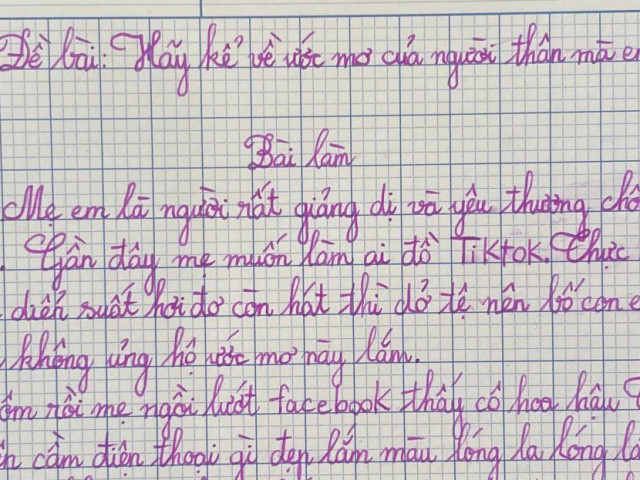 Đề bài: Hãy kể về ước mơ của người thân mà em
Bài làm
Mẹ em là người rất giảng dị và yêu thương chồ
. Gần đây mẹ muốn làm ai đồ TikTok. Thực
diễn suất hơi đơ còn hát thì dở tệ nên bố con e
không ủng hộ ước mơ này lắm.
ôm rồi mẹ ngồi lướt facebook thấy cô hoa hậu
n cầm điện thoại gì đẹp lắm màu lóng la lóng lá